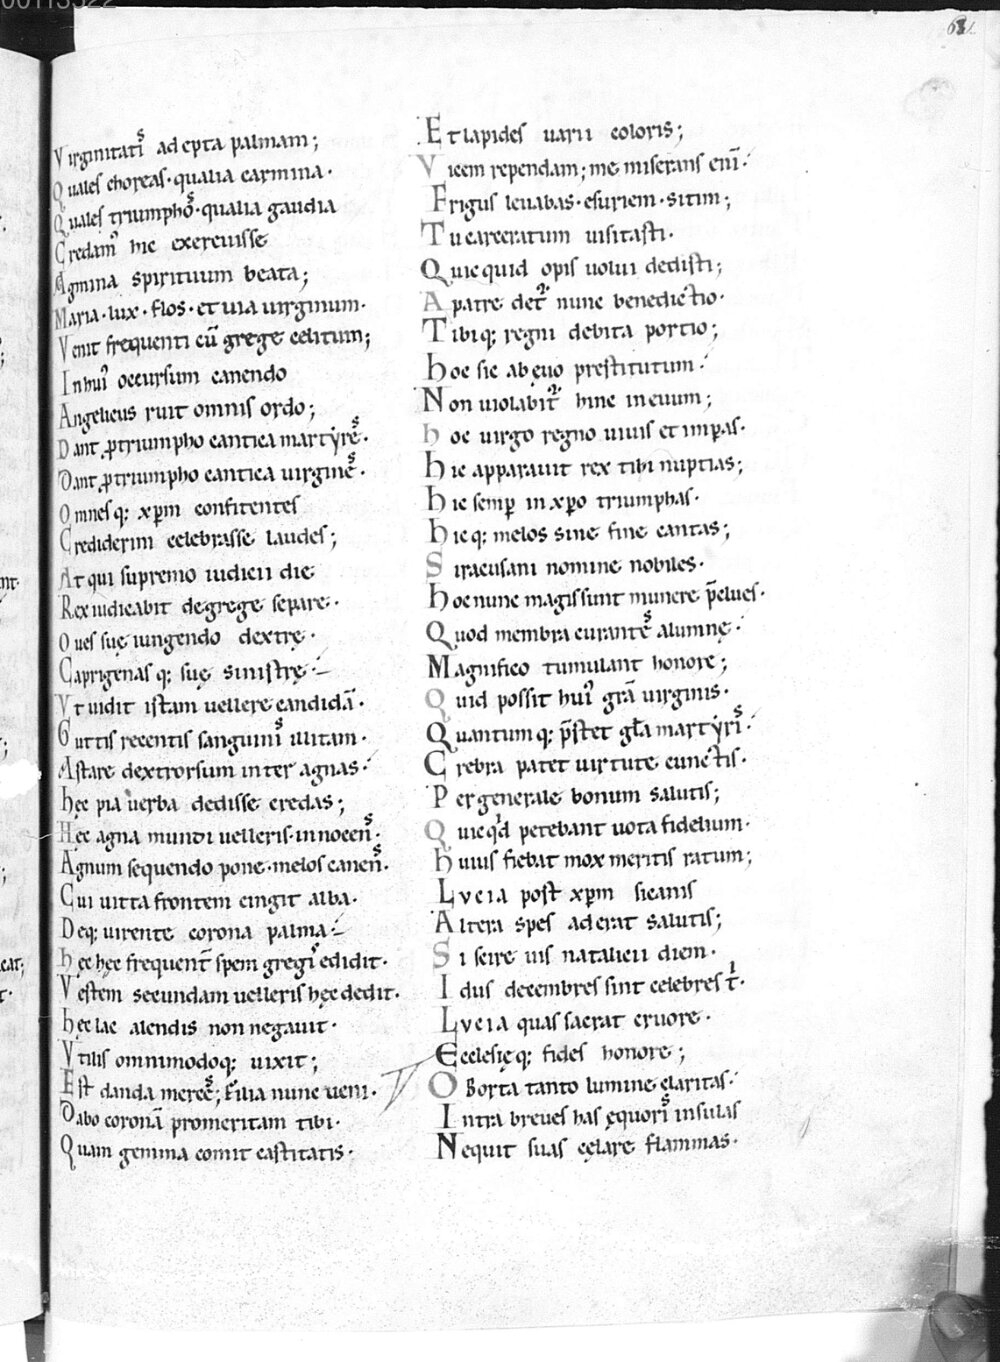 00113522
61
Virginitatis adepta palmam;
Quales choreas · qualia carmina ·
Quales triumphos · qualia gaudia
Credam' hic exercuisse
Agmina spirituum beata;
Maria · lux · flos · et uia uirginum ·
Venit frequenti cū grege celitum;
In hui' occursum canendo
Angelicus ruit omnis ordo;
Dant ꝓ triumpho cantica martẏres ·
Dant ꝓ triumpho cantica uirgines ·
Omnesq; xp̄m confitentes
Crediderim celebrasse laudes;
At qui supremo iudicii die
Rex iudicabit de grege separe ·
Oues suę iungendo dextrę ·
Caprigenas q; suę sinistrę ·
Vt uidit istam uellere candidā ·
Guttis recentis sanguinis illitam ·
Astare dextrorsum inter agnas ·
hęc pia uerba dedisse credas;
Hęc agna mundi uelleris · innocens ·
Agnum sequendo pone · melos canens ·
Cui uitta frontem cingit alba ·
Deq; uirente corona palma ·
hęc hęc frequent̄ spem gregis edidit ·
Vestem secundam uelleris hęc dedit ·
hęc lac alendis non negauit ·
Vtilis omnimodoq; uixit;
Est danda merces; Filia nunc ueni ·
Dabo coronā promeritam tibi ·
Quam gemma comit castitatis ·
Et lapides uarii coloris;
Vicem rependam; me miserans enī ·
Frigus leuabas · esuriem · sitim;
Tu carceratum uisitasti ·
Quicquid opis uolui dedisti;
A patre det' nunc benedictio ·
Tibiq; regni debita portio;
hoc sic ab euo prestitutum ·
Non uiolabit' hinc in euum;
hoc uirgo regno uiuis et imꝑas ·
hic apparauit rex tibi nuptias;
hic semꝑ in xp̄o triumphas ·
hicq; melos sine fine cantas;
Siracusani nomine nobiles ·
hoc nunc magis sunt munere p̄clues ·
Quod membra curantes alumnę ·
Magnifico tumulant honore;
Quid possit hui' grā uirginis ·
Quantumq; p̄stet gl̄a martẏris ·
Crebra patet uirtute cunctis ·
Per generale bonum salutis;
Quicq'd petebant uota fidelium ·
huius fiebat mox meritis ratum;
Lvcia post xp̄m sicanis
Altera spes aderat salutis;
Si scire uis natalicii diem ·
Idus decembres sint celebres t' ·
Lvcia quas sacrat cruore ·
Ecclesięq; fides honore;
Oborta tanto lumine claritas ·
Intra breues has ęquoris insulas
Nequit suas cęlare flammas ·